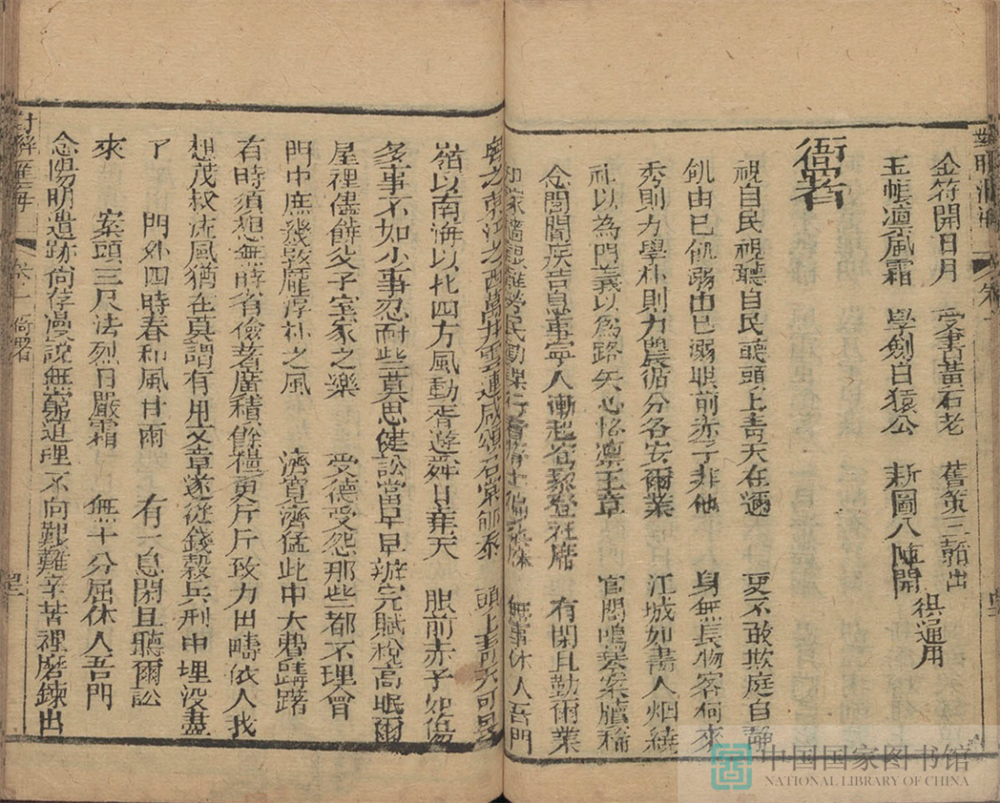 金符開日月 受書黃石老 舊策三韜出
玉帳凛風霜 學劍白猿公 新圖八陣開 俱通用
衙署
視自民視聽自民聽頭上青天在邇 更不敢欺庭自靜
飢由已飢溺由已溺眼前赤子非他 身無長物客何來
秀則力學朴則力農循分各安爾業 江城如畫人烟繞
礼以為門義以為路矢心恪凛王章 官閣鳴琴案牘稀
念閭閻疾苦息事寧人漸起瘡痍登衽席 有閑且勤爾業
無事休入吾門
粵之東江之西萬井雲連成 頭上青天可
嶺以南海以北四方風動胥遊舜日堯天 眼前赤子如傷
多事不如小事忍耐些莫思健訟當早早辦完賦稅高眠爾
屋裡儘饒父子室家之樂 受德受怨那些都不理會
門中庶幾敦龐淳朴之風 濟寬濟猛此中大費躊躇
有時須想無時省儉著廣積餘糧更斤斤致力田疇依人我
想茂叔流風猶在莫謂有用文章遂從錢穀兵刑中埋没盡
了 門外四時春和風甘雨 有一息閑且聽爾訟
來 案頭三尺法烈日嚴霜 無十分屈休入吾門
念陽明遺跡尚存漫說無窮道理不向艱難辛苦裡磨鍊出
卷一 衙署
中国国家图书馆
NATIONAL LIBRARY OF CHINA